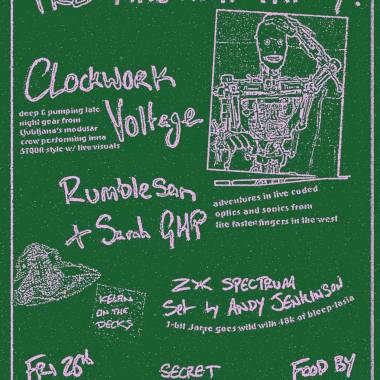 Clockwork
Voltage
deep & pumping late
night gear from
ljubljana's modular
crew performing inna
STOOR style w/ live visuals
Rumblesan
+ Sarah GHP
adventures in live coded
optics and sonics from
the fastest fingers in the west
KELAN
ON THE
DECKS
ZX SPECTRUM
Set by ANDY JENKINSON
1-bit Jarre goes wild with 48k of bleep-tasia
FRI 26th
SECRET
FOOD BY